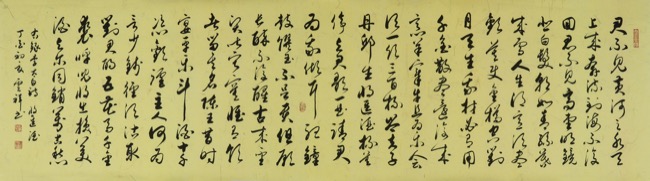 君不見黃河之水天
上來奔流到海不復
回君不見高堂明鏡
悲白髮朝如青絲暮
成雪人生得意須盡
歡莫使金樽空對
月天生我材必有用
千金散盡還復來
烹羊宰牛且為樂會
須一飲三百杯岑夫子
丹邱生將進酒杯莫
停與君歌一曲請君
為我傾耳聽鐘
鼓饌玉不足貴但願
長醉不復醒古來聖
賢皆寂寞惟有飲
者留其名陳王昔時
宴平樂斗酒十千
恣歡謔主人何為
言少錢徑須沽取
對君酌五花馬千金
裘呼兒將出換美
酒與爾同銷萬古愁
右錄李太白詩將進酒
丁亥初春雲祥書